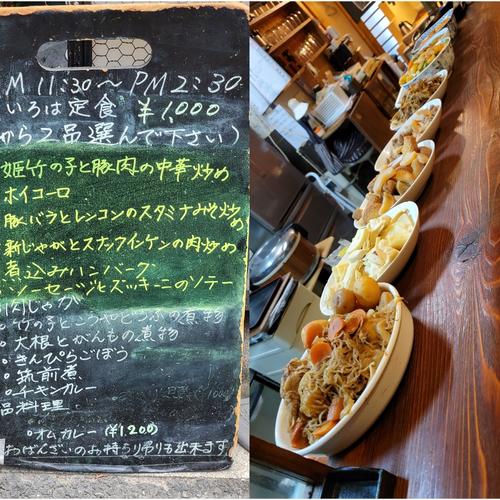 M 11:30〜PM2:30
いろは定食 ¥1,000
から2品選んで下さい)
姫竹の子と豚肉の中華炒め
ホイコーロ
豚バラとレンコンのスタミナみそ炒め
新じゃがとスナックインゲンの肉炒め
煮込みハンバーグ
ソーセージとズッキーニのソテー
肉じゃが
竹の子とこうやとうふの煮物
。大根とがんもの煮物
。きんぴらごぼう
。筑前煮
。チキンカレー
品料理
。オムカレー(¥1200)
おばんざいのお持ち帰りも出来ます